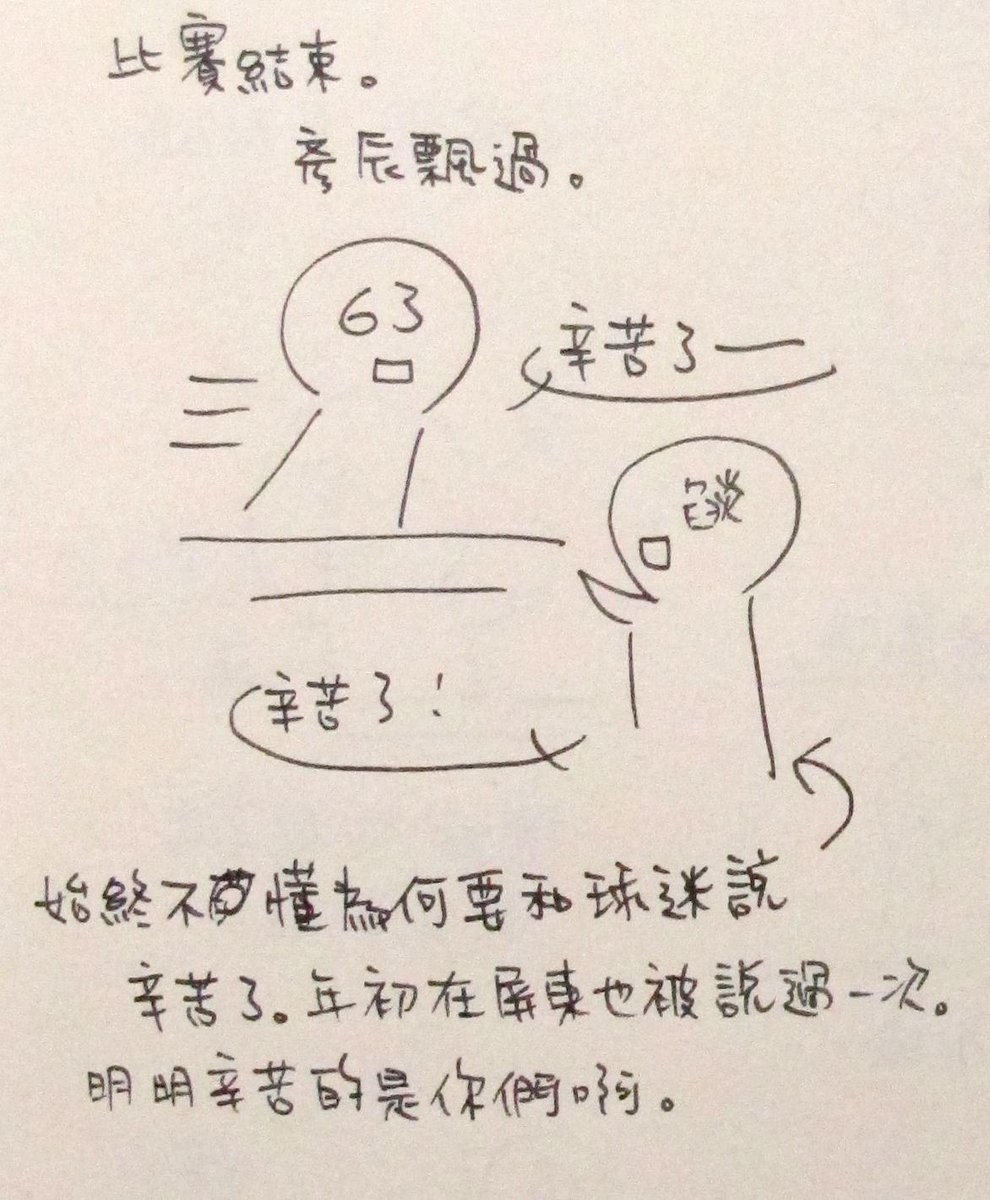 比賽結束。
彥辰飄過。
63
辛苦了——
辛苦了！
始終不懂為何要和球迷說
辛苦了。年初在屏東也被說過一次。
明明辛苦的是你們啊。